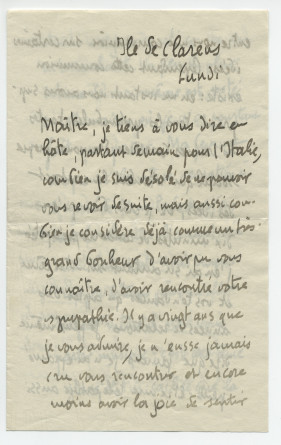 Ile de Clarens
Lundi
Maître, je tiens à vous dire en
hâte, partant demain pour l'Italie,
combien je suis désolé de ne pouvoir
vous revoir de suite, mais aussi com-
bien je considère déjà comme un très
grand bonheur d'avoir pu vous
connaître, d'avoir rencontré votre
sympathie. Il y a vingt ans que
je vous admire, je n'eusse jamais
cru vous rencontrer et encore
moins avoir la joie de sentir